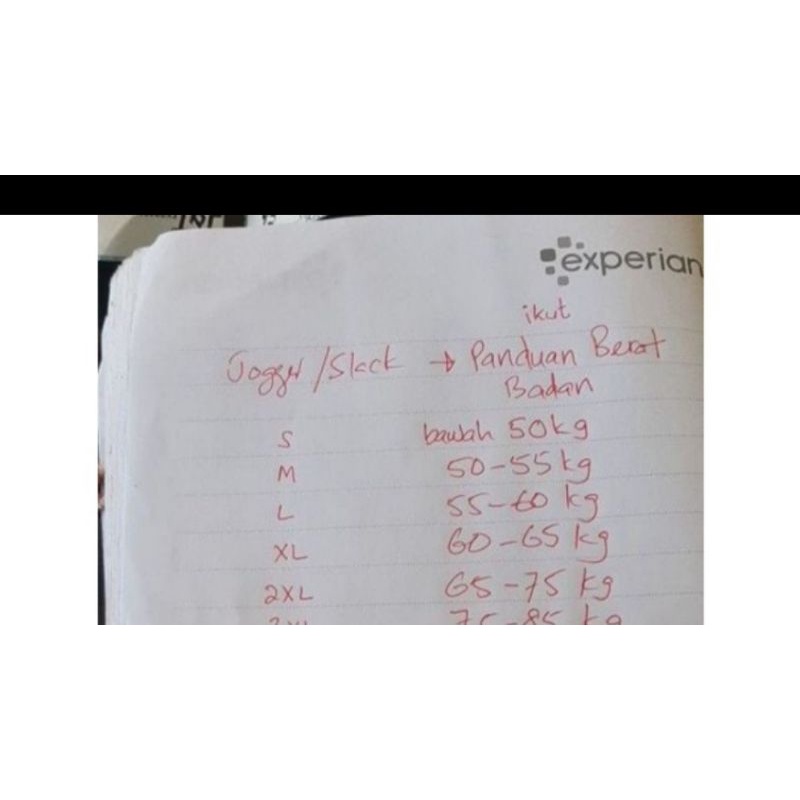 experian
ikut
Jogger/Slack → Panduan Berat
Badan
S bawah 50kg
M 50-55kg
L 55-60 kg
XL 60-65 kg
2XL 65-75 kg
75-85 kg